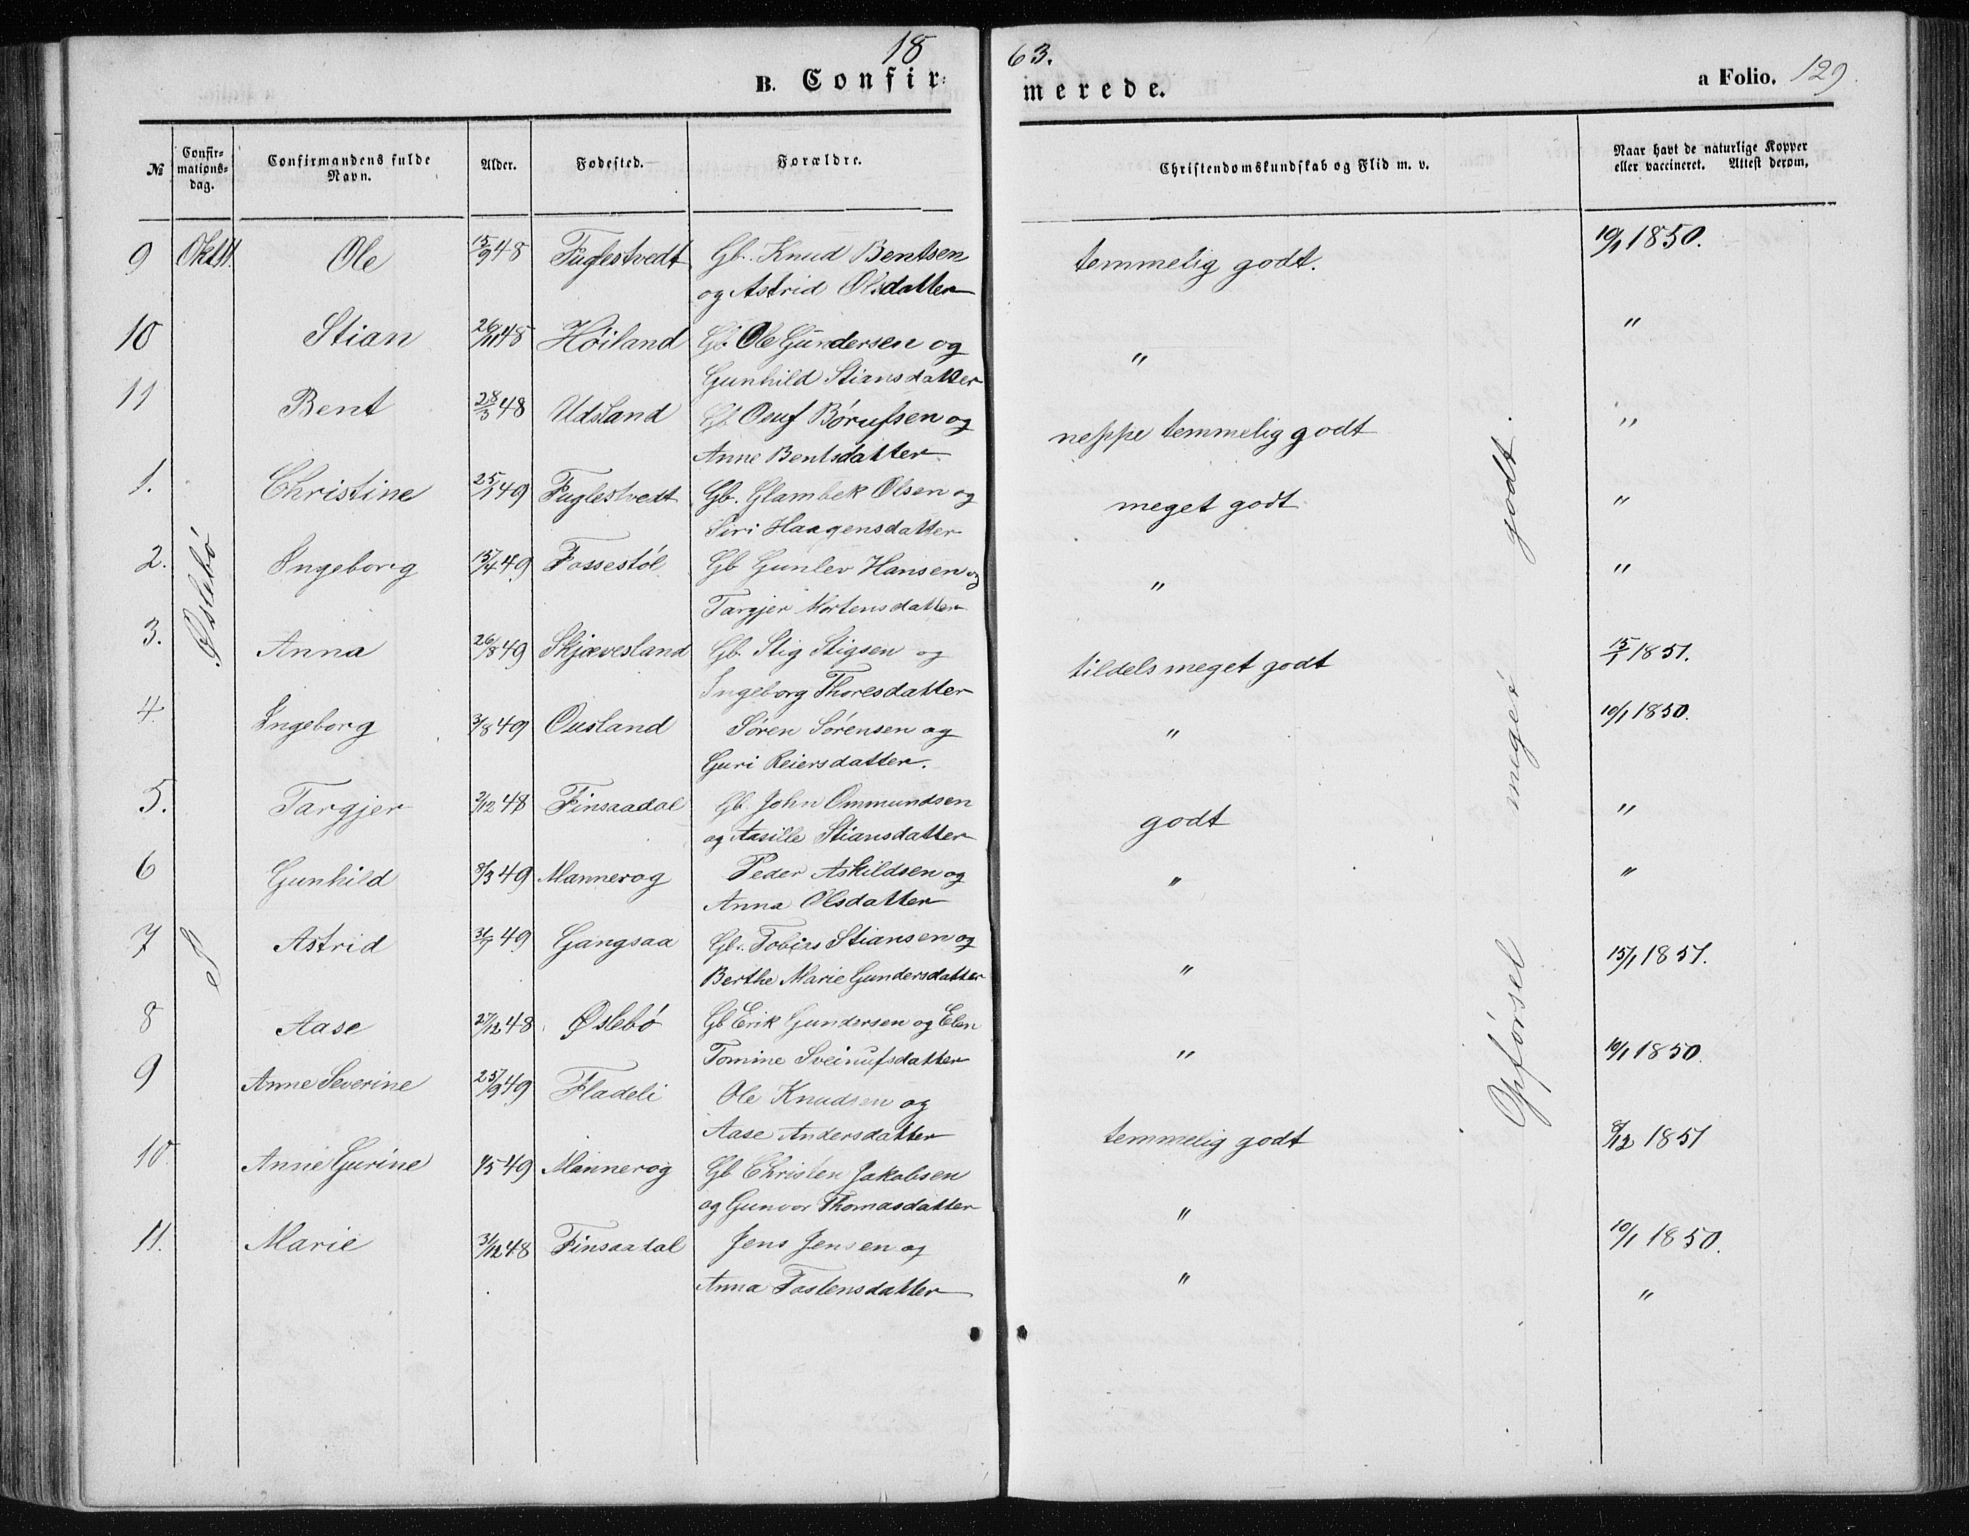 18 63.
B. Confir- merede. a Folio. 129.
№ Confirmationsdag. Confirmandens fulde Navn. Alder. Fødested. Forældre. Christendomskundskab og Flid m. v. Naar havt de naturlige Kopper eller vaccineret. Attest derom.
9 Okt 11. Ole 15/9 48 Fuglestvedt Gb. Knud Bentsen temmelig godt. 10/1 1850.
og Astrid Olsdatter
10 Stian 26/11 48 Høiland Gb. Ole Gundersen og " "
Gunhild Stiansdatter
11 Bent 28/3 48 Udsland Gb. Oeuf Børufsen og neppe temmelig godt "
Anne Bentsdatter.
1. Christine 25/1 49 Fuglestvedt Gb. Glambek Olsen og meget godt "
Siri Haagensdatter
2. Ingeborg 15/4 49 Fossestøl Gb Gunlev Hansen og " "
Targjer Mortensdatter
3. Anna 26/8 49 Skjævesland Gb. Stig Stigsen og tildels meget godt 15/1 1851.
Ingeborg Thoresdatter
4. Ingeborg 3/8 49 Ousland Søren Sørensen og " 10/1 1850.
Guri Reiersdatter.
5. Targjer 3/12 48 Finsaadal Gb. John Ommundsen godt "
og Aasille Stiansdatter
6 Gunhild 8/3 49 Mannerog Peder Askildsen og " "
Anna Olsdatter
7 Astrid 31/7 49 Gangsaa Gb. Tobias Stiansen og " 15/1 1851.
Berthe Marie Gundersdatter
8 Aase 27/12 48 Øslebø Gb Erik Gundersen og Elen " 10/1 1850.
Tomine Sveinufsdatter
9 Anne Severine 25/9 49 Fladeli Ole Knudsen og temmelig godt 8/12 1851
Aase Andersdatter
10. Anne Gurine 1/5 49 Mannerog Gb Christen Jakobsen " 10/1 1850.
og Gunvor Thomasdatter
11. Marie 31/12 48 Finsaadal Jens Jensen og " "
Anna Tostensdatter
Øslebø
Opførsel meget godt.